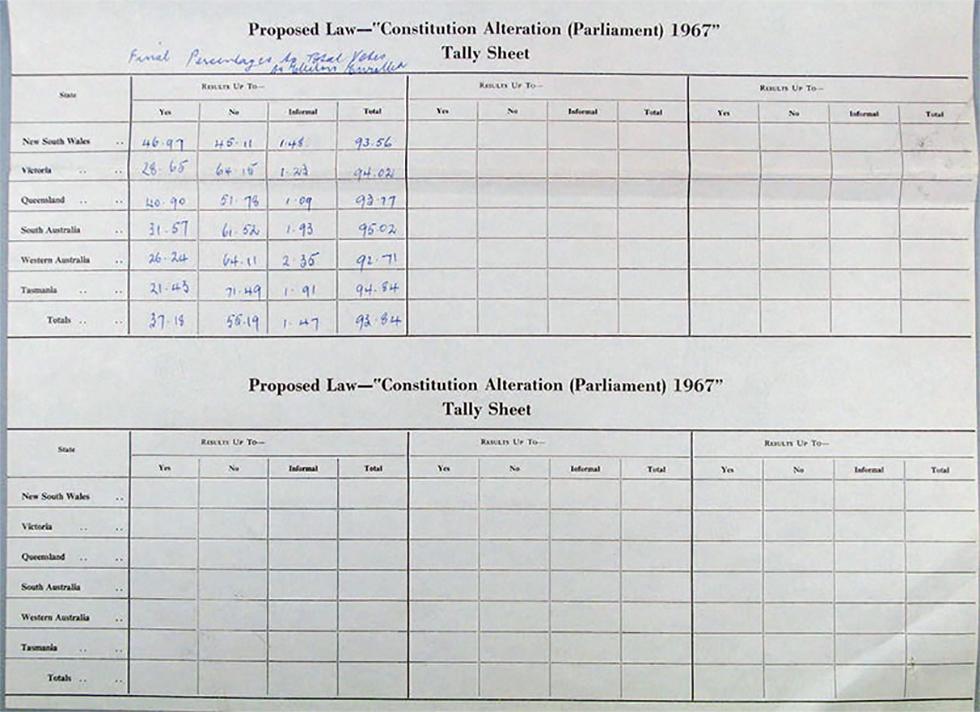 Proposed Law—"Constitution Alteration (Parliament) 1967"
Tally Sheet
Final Percentages to Total Votes
to Electors Enrolled
State Results Up To— Results Up To— Results Up To—
Yes No Informal Total Yes No Informal Total Yes No Informal Total
New South Wales .. 46.97 45.11 1.48 93.56
Victoria .. .. 28.65 64.15 1.23 94.02
Queensland .. .. 40.90 51.78 1.09 93.77
South Australia .. 31.57 61.52 1.93 95.02
Western Australia .. 26.24 64.11 2.35 92.71
Tasmania .. .. 21.43 71.49 1.91 94.84
Totals .. .. 37.18 55.19 1.47 93.84
Proposed Law—"Constitution Alteration (Parliament) 1967"
Tally Sheet
State Results Up To— Results Up To— Results Up To—
Yes No Informal Total Yes No Informal Total Yes No Informal Total
New South Wales ..
Victoria .. ..
Queensland .. ..
South Australia ..
Western Australia ..
Tasmania .. ..
Totals .. ..